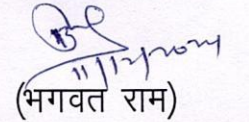 11/12/2024
(भगवत राम)